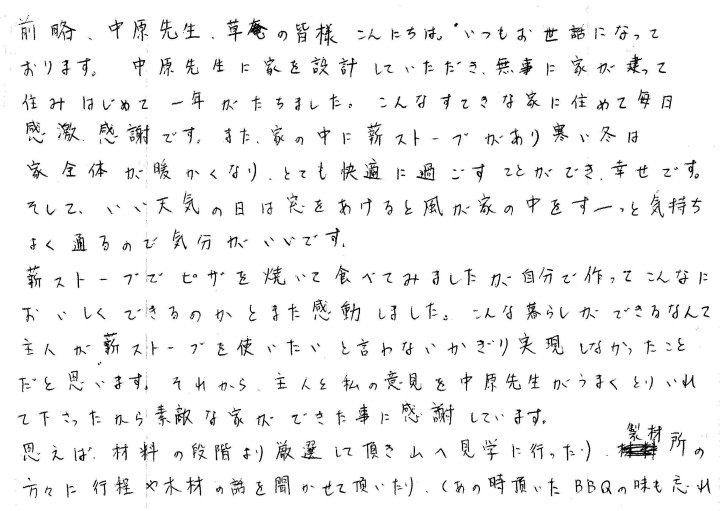 前略、中原先生、草庵の皆様 こんにちは。いつもお世話になって
おります。 中原先生に家を設計していただき、無事に家が建って
住みはじめて一年がたちました。こんなすてきな家に住めて毎日
感激、感謝です。また、家の中に薪ストーブがあり寒い冬は
家全体が暖かくなり、とても快適に過ごすことができ、幸せです。
そして、いい天気の日は窓をあけると風が家の中をすーっと気持ち
よく通るので気分がいいです。
薪ストーブでピザを焼いて食べてみましたが自分で作ってこんなに
おいしくできるのかとまた感動しました。こんな暮らしができるなんて
主人が薪ストーブを使いたいと言わないかぎり実現しなかったこと
だと思います。それから、主人と私の意見を中原先生がうまくとりいれ
て下さったから素敵な家ができた事に感謝しています。
思えば、材料の段階より厳選して頂き山へ見学に行ったり、製材所の
方々に行程や木材の話を聞かせて頂いたり、(あの時頂いたBBQの味も忘れ